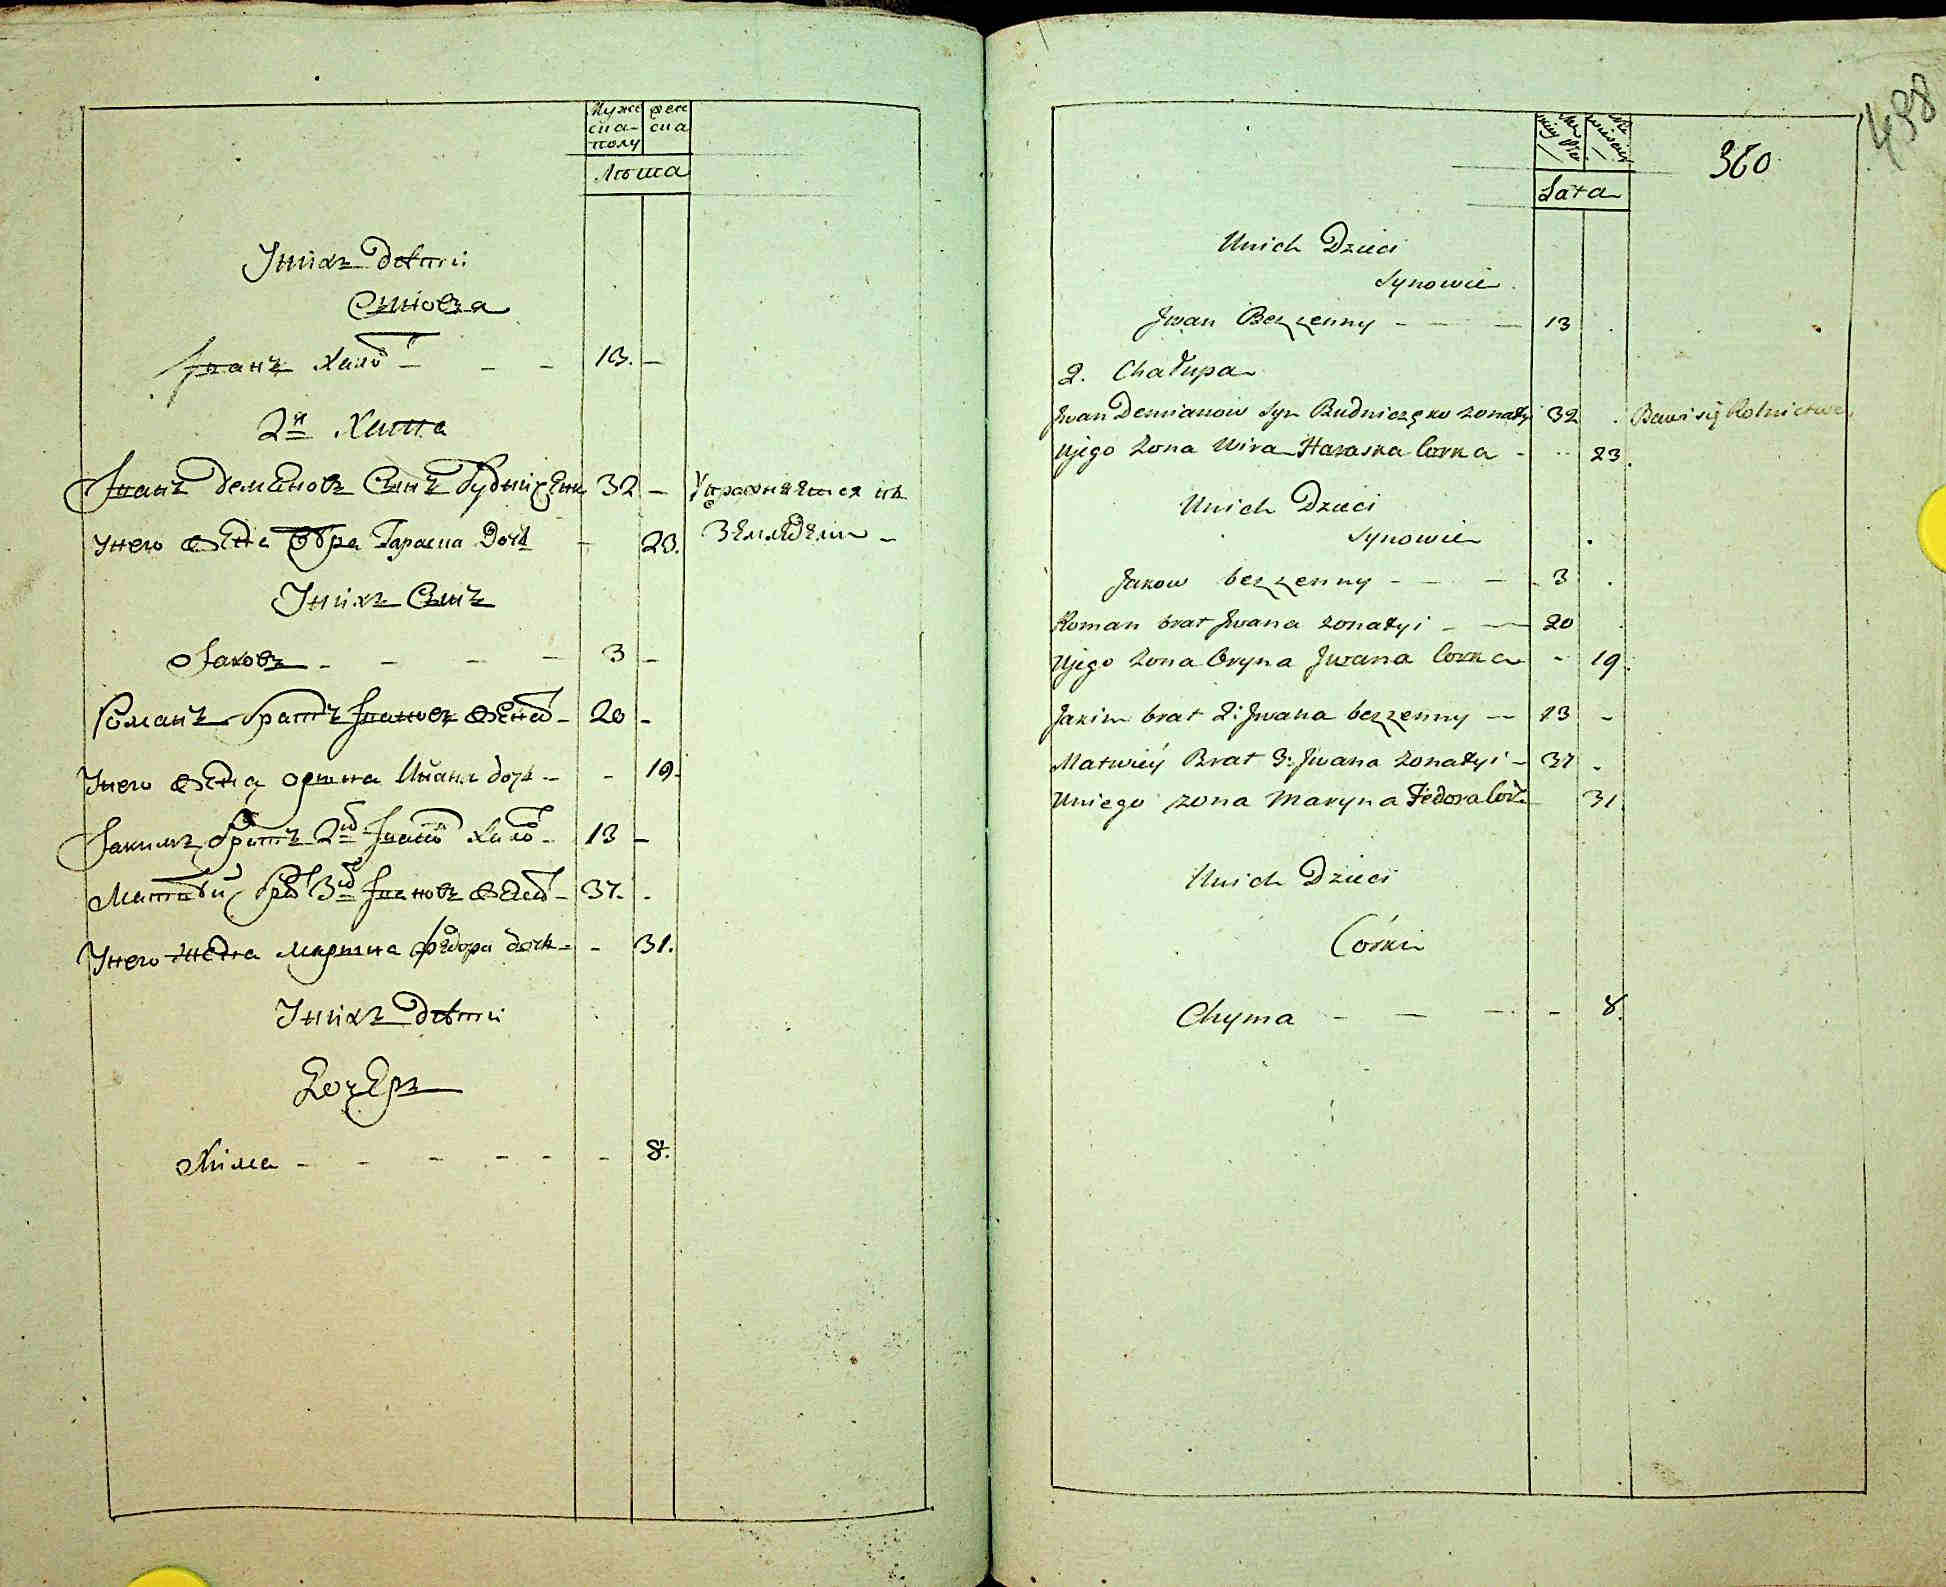 Муже
ска-
полу
жен
ска
Лѣта
Унихъ дѣти
Синовѣ
Іванъ Хол. – – – 13. –
2я Хатта
Іванъ Демяновъ Синъ Будниченк 32 – Упражняется въ
Унего жена Вѣра Гараска дочь – 23. Землѣделіи –
Унихъ Синъ
Яковъ – – – – 3 –
Романъ братъ Івановъ женат – 20 –
Унего жена Орина Ивана дочь – – 19.
Яким братъ 2й Іванов Хол – 13 –
Матвѣй брат 3й Івановъ женат – 37. –
Унего жена Марина Федора дочь – – 31.
Унихъ дѣти
Дочеръ
Хима – – – – – – 8.
498
360
Lata
Unich Dzieci
Synowie
Jwan Bezzenny – – – 13
2. Chałupa
Jwan Demianow Syn Budniczęko zonaty 32 Bawi się Rolnictwe
Ujego Zona Wira Haraska Corka – 23.
Unich Dzieci
Synowie
Jakow bezzenny – – – 3
Roman brat Jwana zonatyi – – 20
Ujego Zona Oryna Jwana Corka – 19.
Jakim brat 2: Jwana bezzenny – 13 –
Matwiéy Brat 3: Jwana Zonatyi – 37 –
Uniego zona Maryna Fedora Cor. 31
Unich Dzieci
Córki
Chyma – – – – 8.